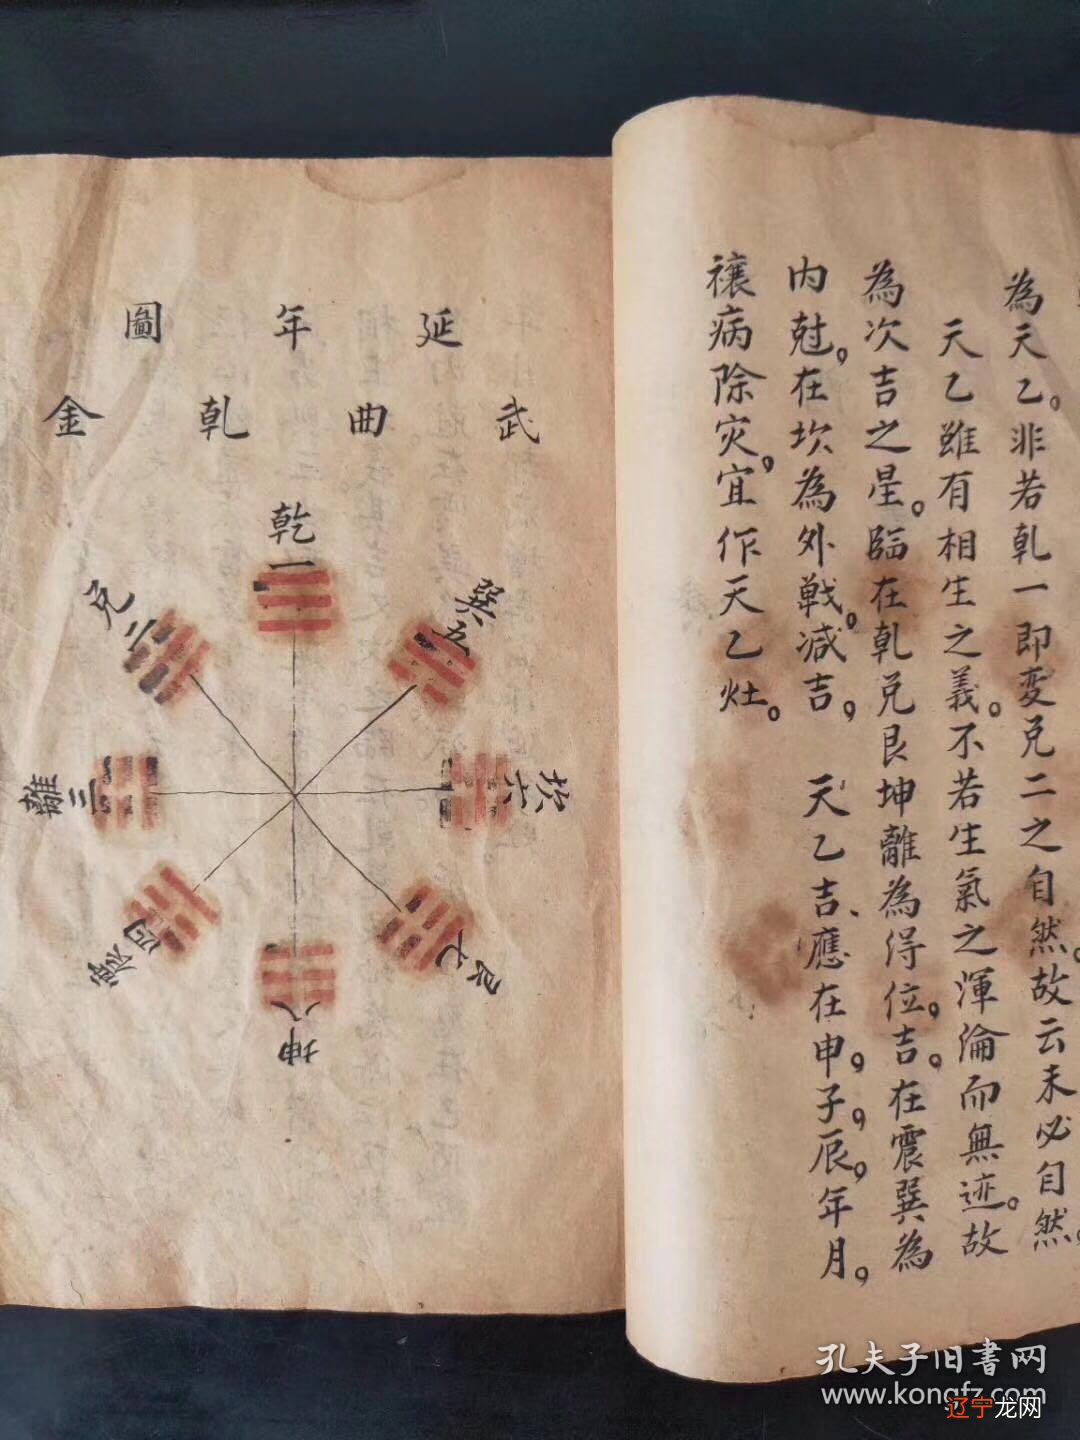 為天乙。非若乹一即变兑二之自然。故云未必自然。
天乙雖有相生之義。不若生氣之渾淪而無迹。故
為次吉之星。臨在乹兑艮坤離為得位。吉。在震巽為
内尅。在坎為外戰。减吉。 天乙吉、應在申。子。辰。年月。
禳病除灾。宜作天乙灶。
延年圖
武曲乹金
乾一
兑二
離三
震四
巽五
坎六
艮七
坤八
孔夫子旧書网
www.kongfz.com
辽宁龙网